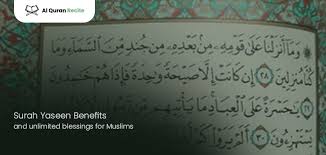 Al Quran Recite
وَمَا أَنزَلْنَا عَلَىٰ قَوْمِهِ مِنْ بَعْدِهِ مِنْ جُندٍ مِنَ السَّمَاءِ وَمَا
كُنَّا مُنزِلِينَ ٢٨ إِن كَانَتْ إِلَّا صَيْحَةً وَاحِدَةً فَإِذَا هُمْ خَامِدُونَ
٢٩ يَٰحَسْرَةً عَلَى الْعِبَادِ مَا يَأْتِيهِم
يَسْتَهْزِءُونَ ٣٠ أَلَمْ يَرَوْا
Surah Yaseen Benefits
and unlimited blessings for Muslims